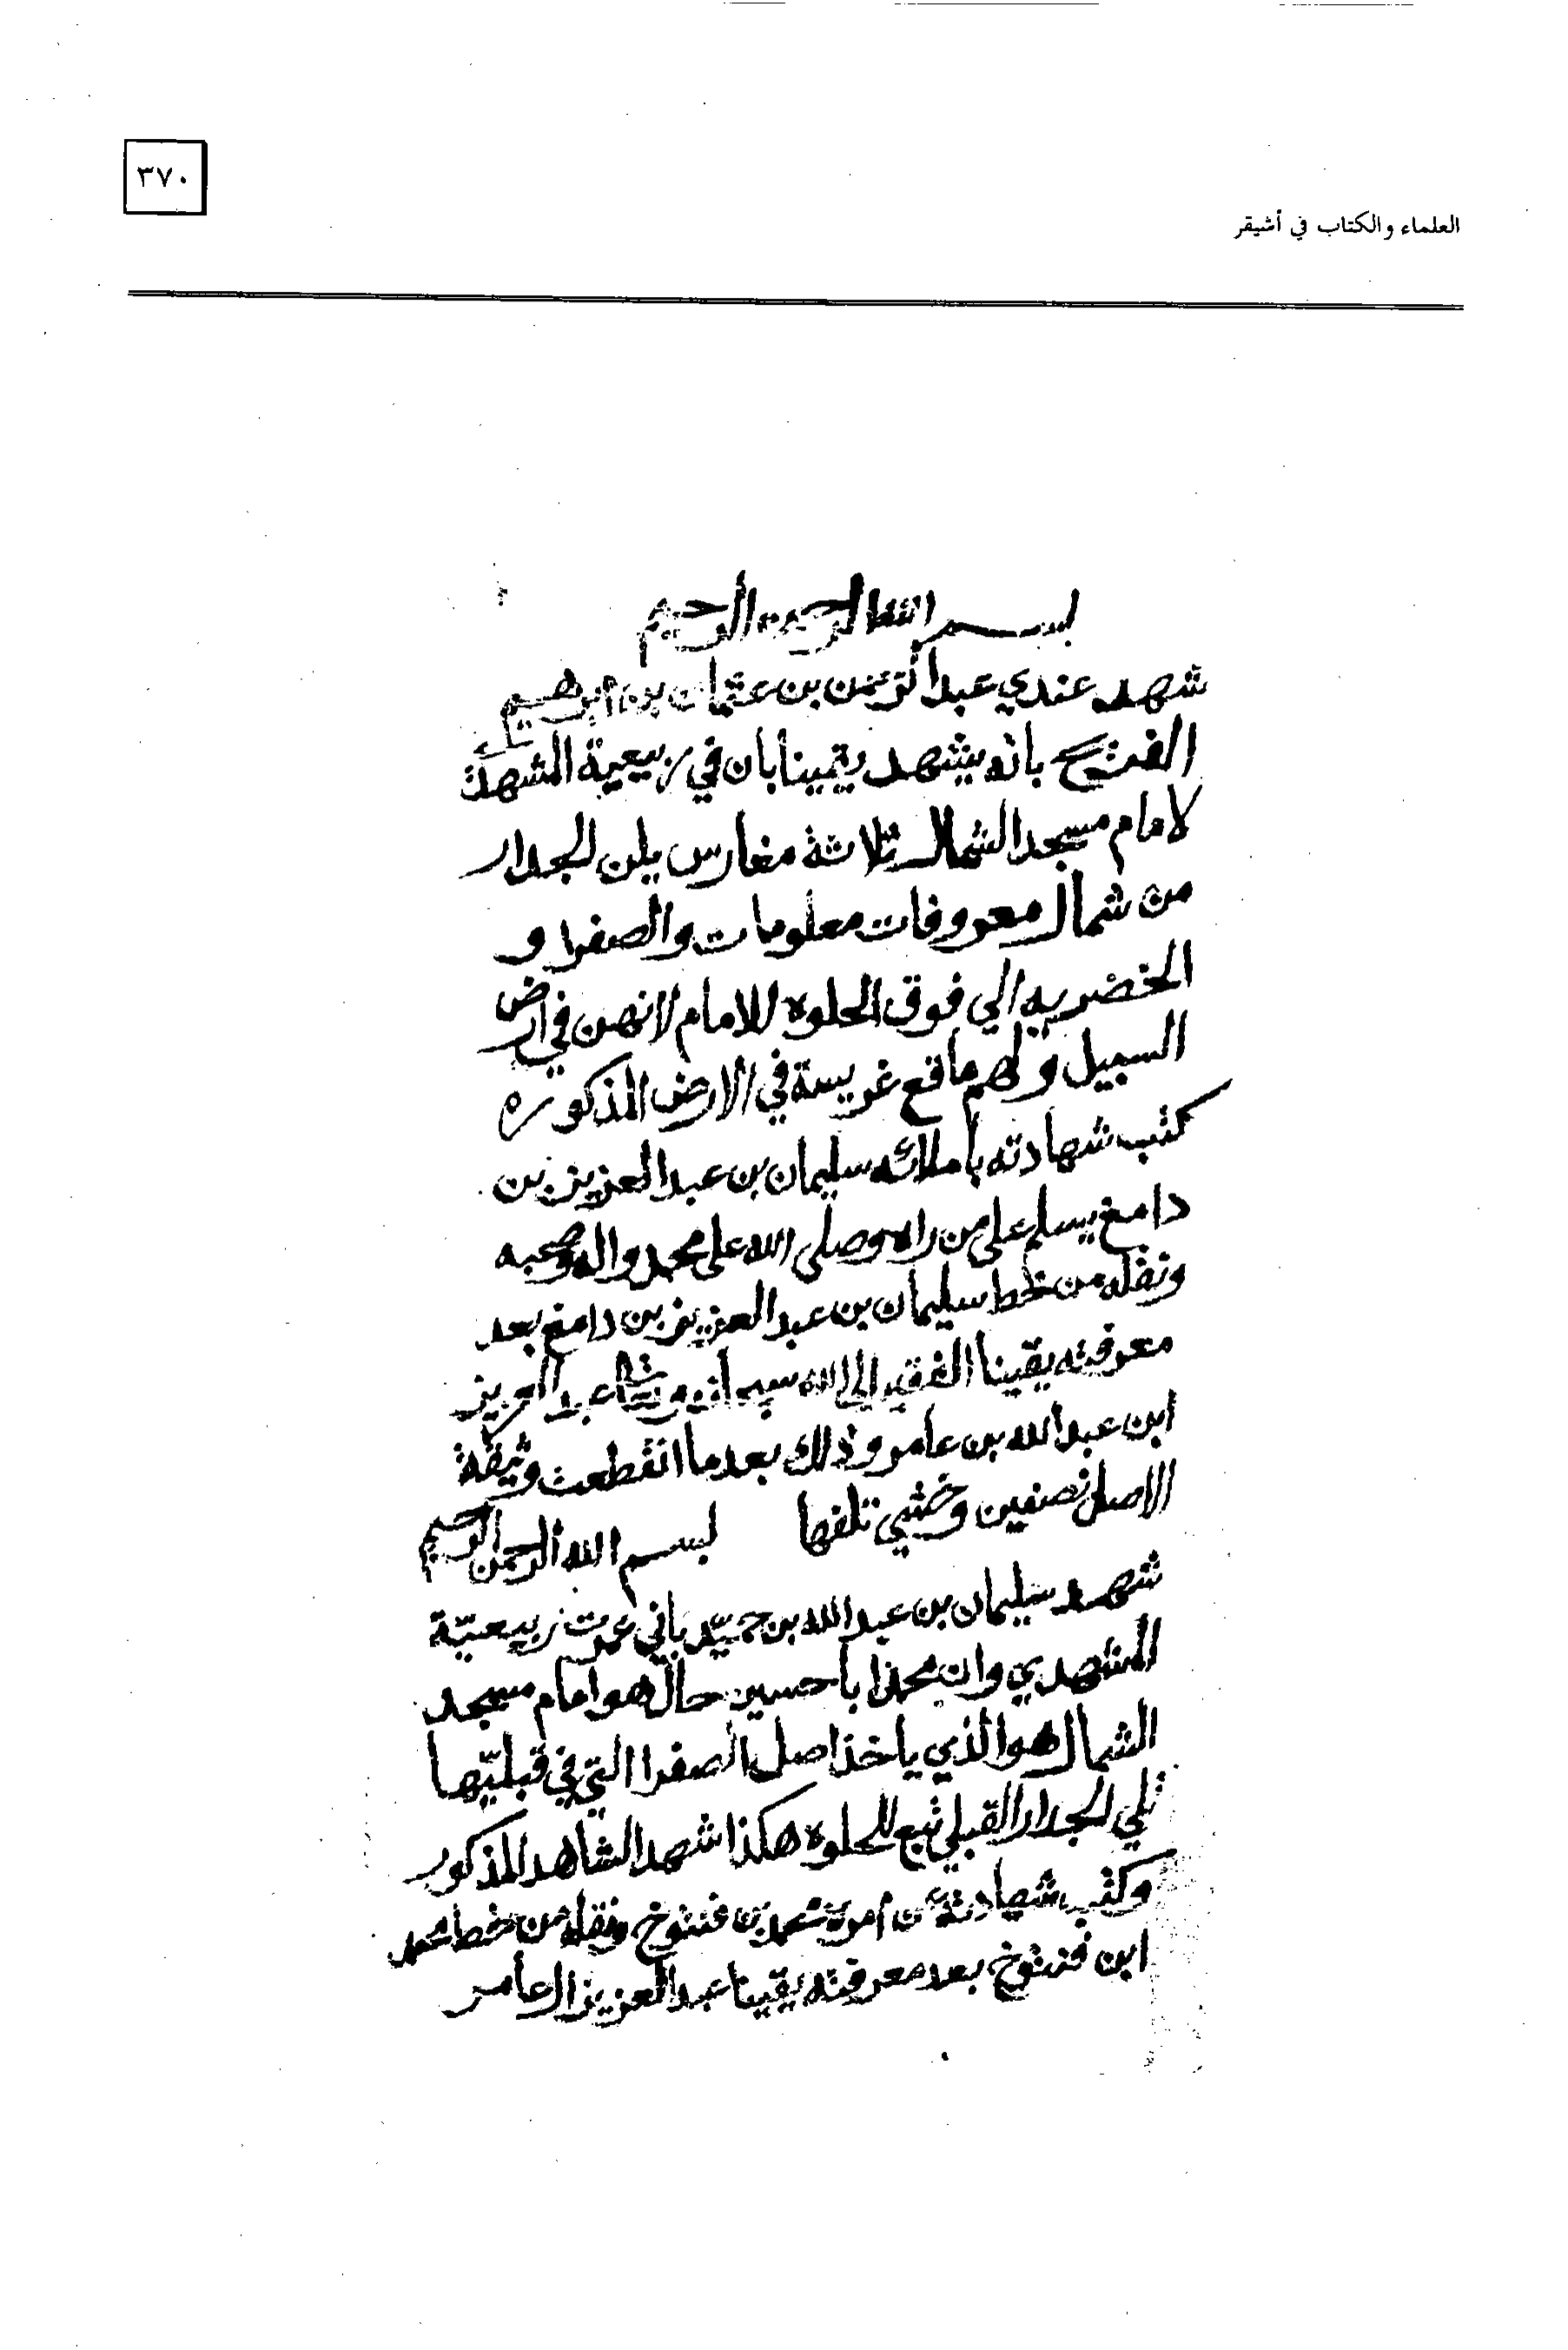 ٣٧٠
العلماء والكتاب في أشيقر
بسم الله الرحمن الرحيم
شهد عندي عبد الرحمن بن عثمان بن ابرهيم
بانه يشهد يقينا بان في ربيعية
لامام مسجد الشمال ثلاثة مغارس يلن الجدار
من شمال معروفات معلومات والصفرا و
الخضريه الي فوق الحلوه للامام لانهن في ارض
السبيل ولهم ما قع غريسة في الارض المذكوره
كتب شهادته بأملائه سليمان بن عبد العزيز بن
دامغ يسلم على من راه وصلى الله على محمد واله وصحبه
ونقله من خط سليمان بن عبد العزيز بن دامغ بعد
معرفته يقينا الفقير الى الله سبحانه عبد العزيز
ابن عبد الله بن عامر وذلك بعد ما انقطعت وثيقة
الاصل نصفين وخشي تلفها بسم الله الرحمن الرحيم
شهد سليمان بن عبد الله بن حميد باني ربيعية
المشهدي وان حال هو امام مسجد
الشمال هو الذي ياخذ اصل الصفرا التي في قبليتها
تلي الجدار القبلي تبع للحلوه هكذا شهد الشاهد المذكور
وكتب شهادته عن امره محمد بن فنتوخ ونقله من خط محمد
ابن فنتوخ بعد معرفته يقينا عبد العزيز ال عامر